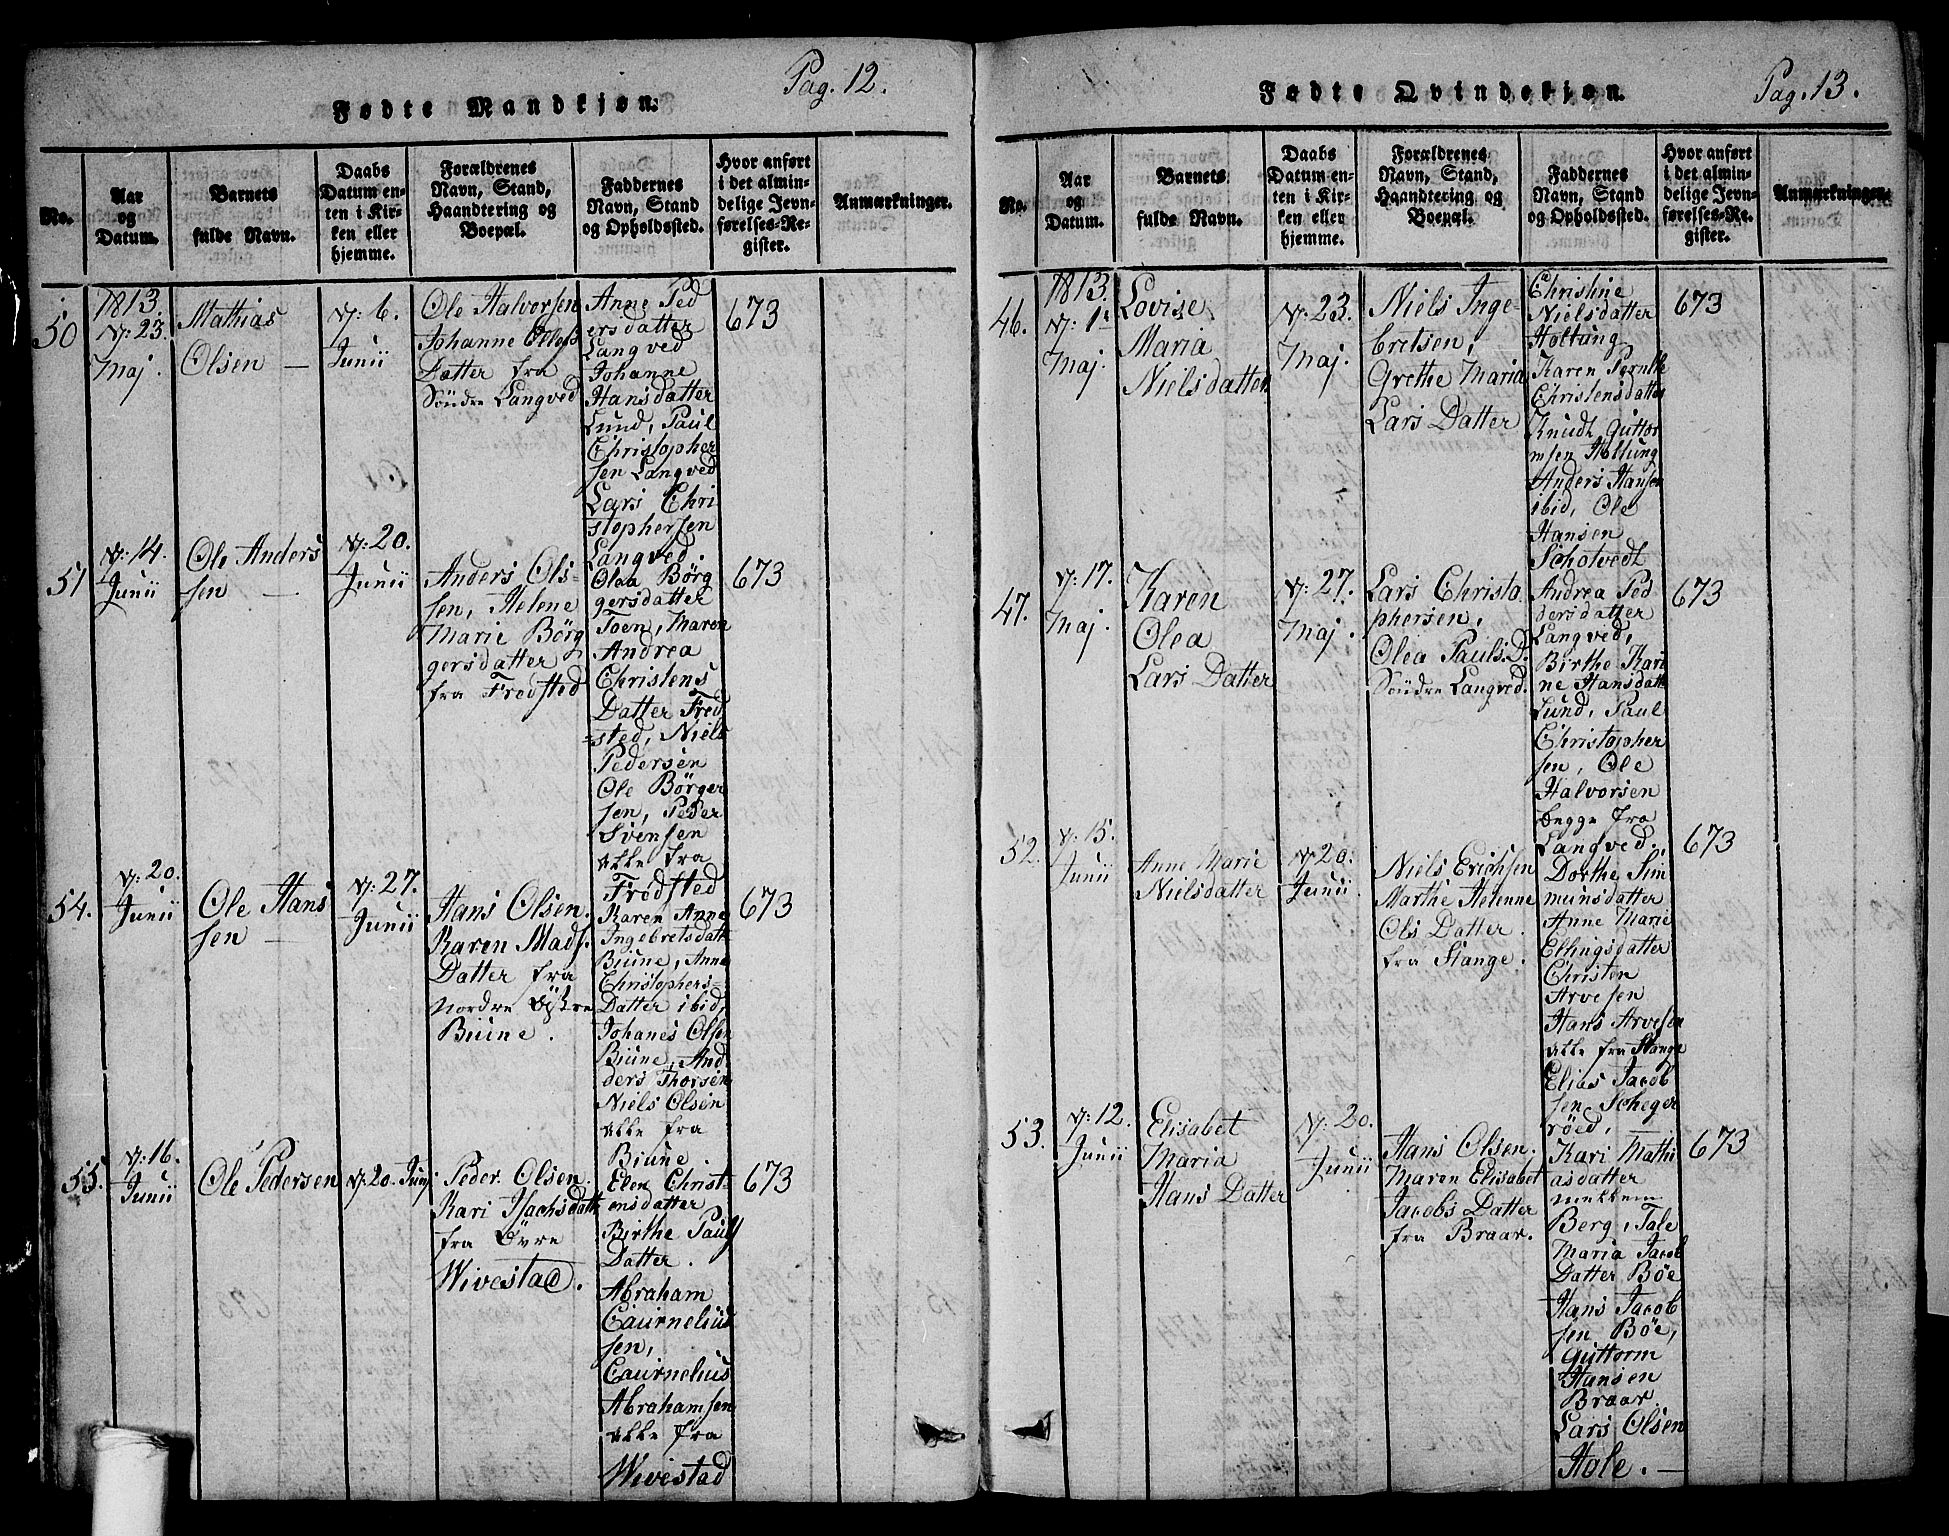 Pag. 12.
Fødte Mandkjøn.
No.
Aar
og
Datum.
Barnets
fulde Navn.
Daabs
Datum en-
ten i Kir-
ken eller
hjemme.
Forældrenes
Navn, Stand,
Haandtering og
Boepæl.
Faddernes
Navn, Stand
og Opholdssted.
Hvor anført
i det almin-
delige Jevn-
førelses-Re-
gister.
Anmærkninger.
50
1813.
23.
Maj.
Mathias
Olsen —
6.
Junii
Ole Halvorsen
Johanne
Datter fra
Søndre Langved
Anne Ped
ersdatter
Langved
Johanne
Hansdatter
Lund, Paul
Christopher
sen Langved
Lars Chri
stophersen
Langved.
673
51
14.
Junii
Ole Anders
sen —
20.
Junii
Anders Ols-
sen, Helene
Marie Börg
gersdatter
fra Frodsted
Olea Börg
gersdatter
Toen, Maren
Andrea
Christens
Datter Frod
=sted, Niels
Pedersen
Ole Börger
sen, Peder
Svensen
alle fra
Frodsted
673
54.
20.
Junii
Ole Hans
sen —
27.
Junii
Hans Olsen.
Karen Mads.
Datter fra
Nordre Østre
Biune.
Karen Anne
Ingebretsdatt
Biune, Anne
Christophers-
Datter ibid,
Johanes Olsen
Biune, And
ders Thorsen
Niels Olsen
alle fra
Biune.
673
55.
16.
Junii
Ole Pedersen
20. Junii
Peder Olsen.
Kari Isachsdatt
fra Övre
Wivestad.
Elen Christ-
ensdatter
Birthe Pauls
Datter.
Abraham
Caurnelius
sen,
Caurnelius
Abrahamsen
alle fra
Wivestad
673
Pag. 13.
Fødte Qvindekjøn.
No.
Aar
og
Datum.
Barnets
fulde Navn.
Daabs
Datum en-
ten i Kir-
ken eller
hjemme.
Forældrenes
Navn, Stand,
Haandtering og
Boepæl.
Faddernes
Navn, Stand
og Opholdssted.
Hvor anført
i det almin-
delige Jevn-
førelses-Re-
gister.
Anmærkninger.
46.
1813.
1
Maj.
Lovise
Maria
Nielsdatter
23.
Maj.
Niels Inge-
bretsen,
Grethe Maria
Lars Datter
Christine
Nielsdatter
Holtung
Karen Pernille
Christensdatter
Knudt Guttor
msen Holtung
Anders Hansen
ibid, Ole
Hansen
Scholvedt
673
47.
17.
Maj.
Karen
Olea
Lars Datter
27.
Maj.
Lars Christo-
phersen,
Olea Pauls. D.
Søndre Langved.
Andrea Ped
dersdatter
Langved,
Birthe Kari
ne Hansdatt
Lund, Paul
Christopher
sen, Ole
Halvorsen
begge fra
Langved.
673
52.
15.
Junii
Anne Marie
Nielsdatter
20.
Junii
Niels Erichsen
Marthe Helenne
Ols Datter.
fra Stange.
Dorthe Sim
munsdatter
Anne Marie
Ellingsdatter
Christen
Arvesen
Hans Arvesen
alle fra Stange
Elias Jacob
sen Scheger
röed,
673
53.
12.
Junii
Elisabet
Maria
Hans Datter
20.
Junii
Hans Olsen.
Maren Elisabet
Jacobs Datter
fra Braar.
Kari Mathi
asdatter
mellem
Berg, Tale
Maria Jacob
Datter Böe
Hans Jacob
sen Böe,
Guttorm
Hansen
Braar
Lars Olsen
Hole. —
673